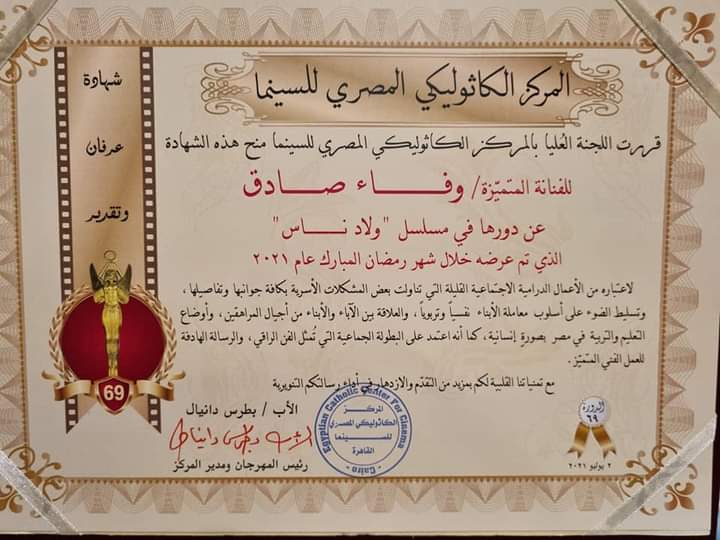 المركز الكاثوليكي المصري للسينما
شهادة
عرفان
وتقدير
قررت اللجنة العُليا بالمركز الكاثوليكي المصري للسينما منح هذه الشهادة
للفنانة المتميّزة/ وفاء صادق
عن دورها في مسلسل "ولاد ناس"
الذي تم عرضه خلال شهر رمضان المبارك عام ٢٠٢١
لاعتباره من الأعمال الدرامية الاجتماعية القليلة التي تناولت بعض المشكلات الأسرية بكافة جوانبها وتفاصيلها ،
وتسليط الضوء على أسلوب معاملة الأبناء نفسياً وتربوياً ، والعلاقة بين الآباء والأبناء من أجيال المراهقين ، وأوضاع
التعليم والتربية في مصر بصورة إنسانية ، كما أنه اعتمد على البطولة الجماعية التي تُمثل الفن الراقي ، والرسالة الهادفة
للعمل الفني المتميّز .
مع تمنياتنا القلبية لكم بمزيد من التقدّم والازدهار في أداء رسالتكم التنويرية
الأب / بطرس دانيال
الأب بطرس دانيال
رئيس المهرجان ومدير المركز
Egyptian Catholic Center For Cinema
المركز
الكاثوليكي المصري
للسينما
القاهرة
- Cairo -
69
الدورة
٦٩
٢ يوليو ٢٠٢١